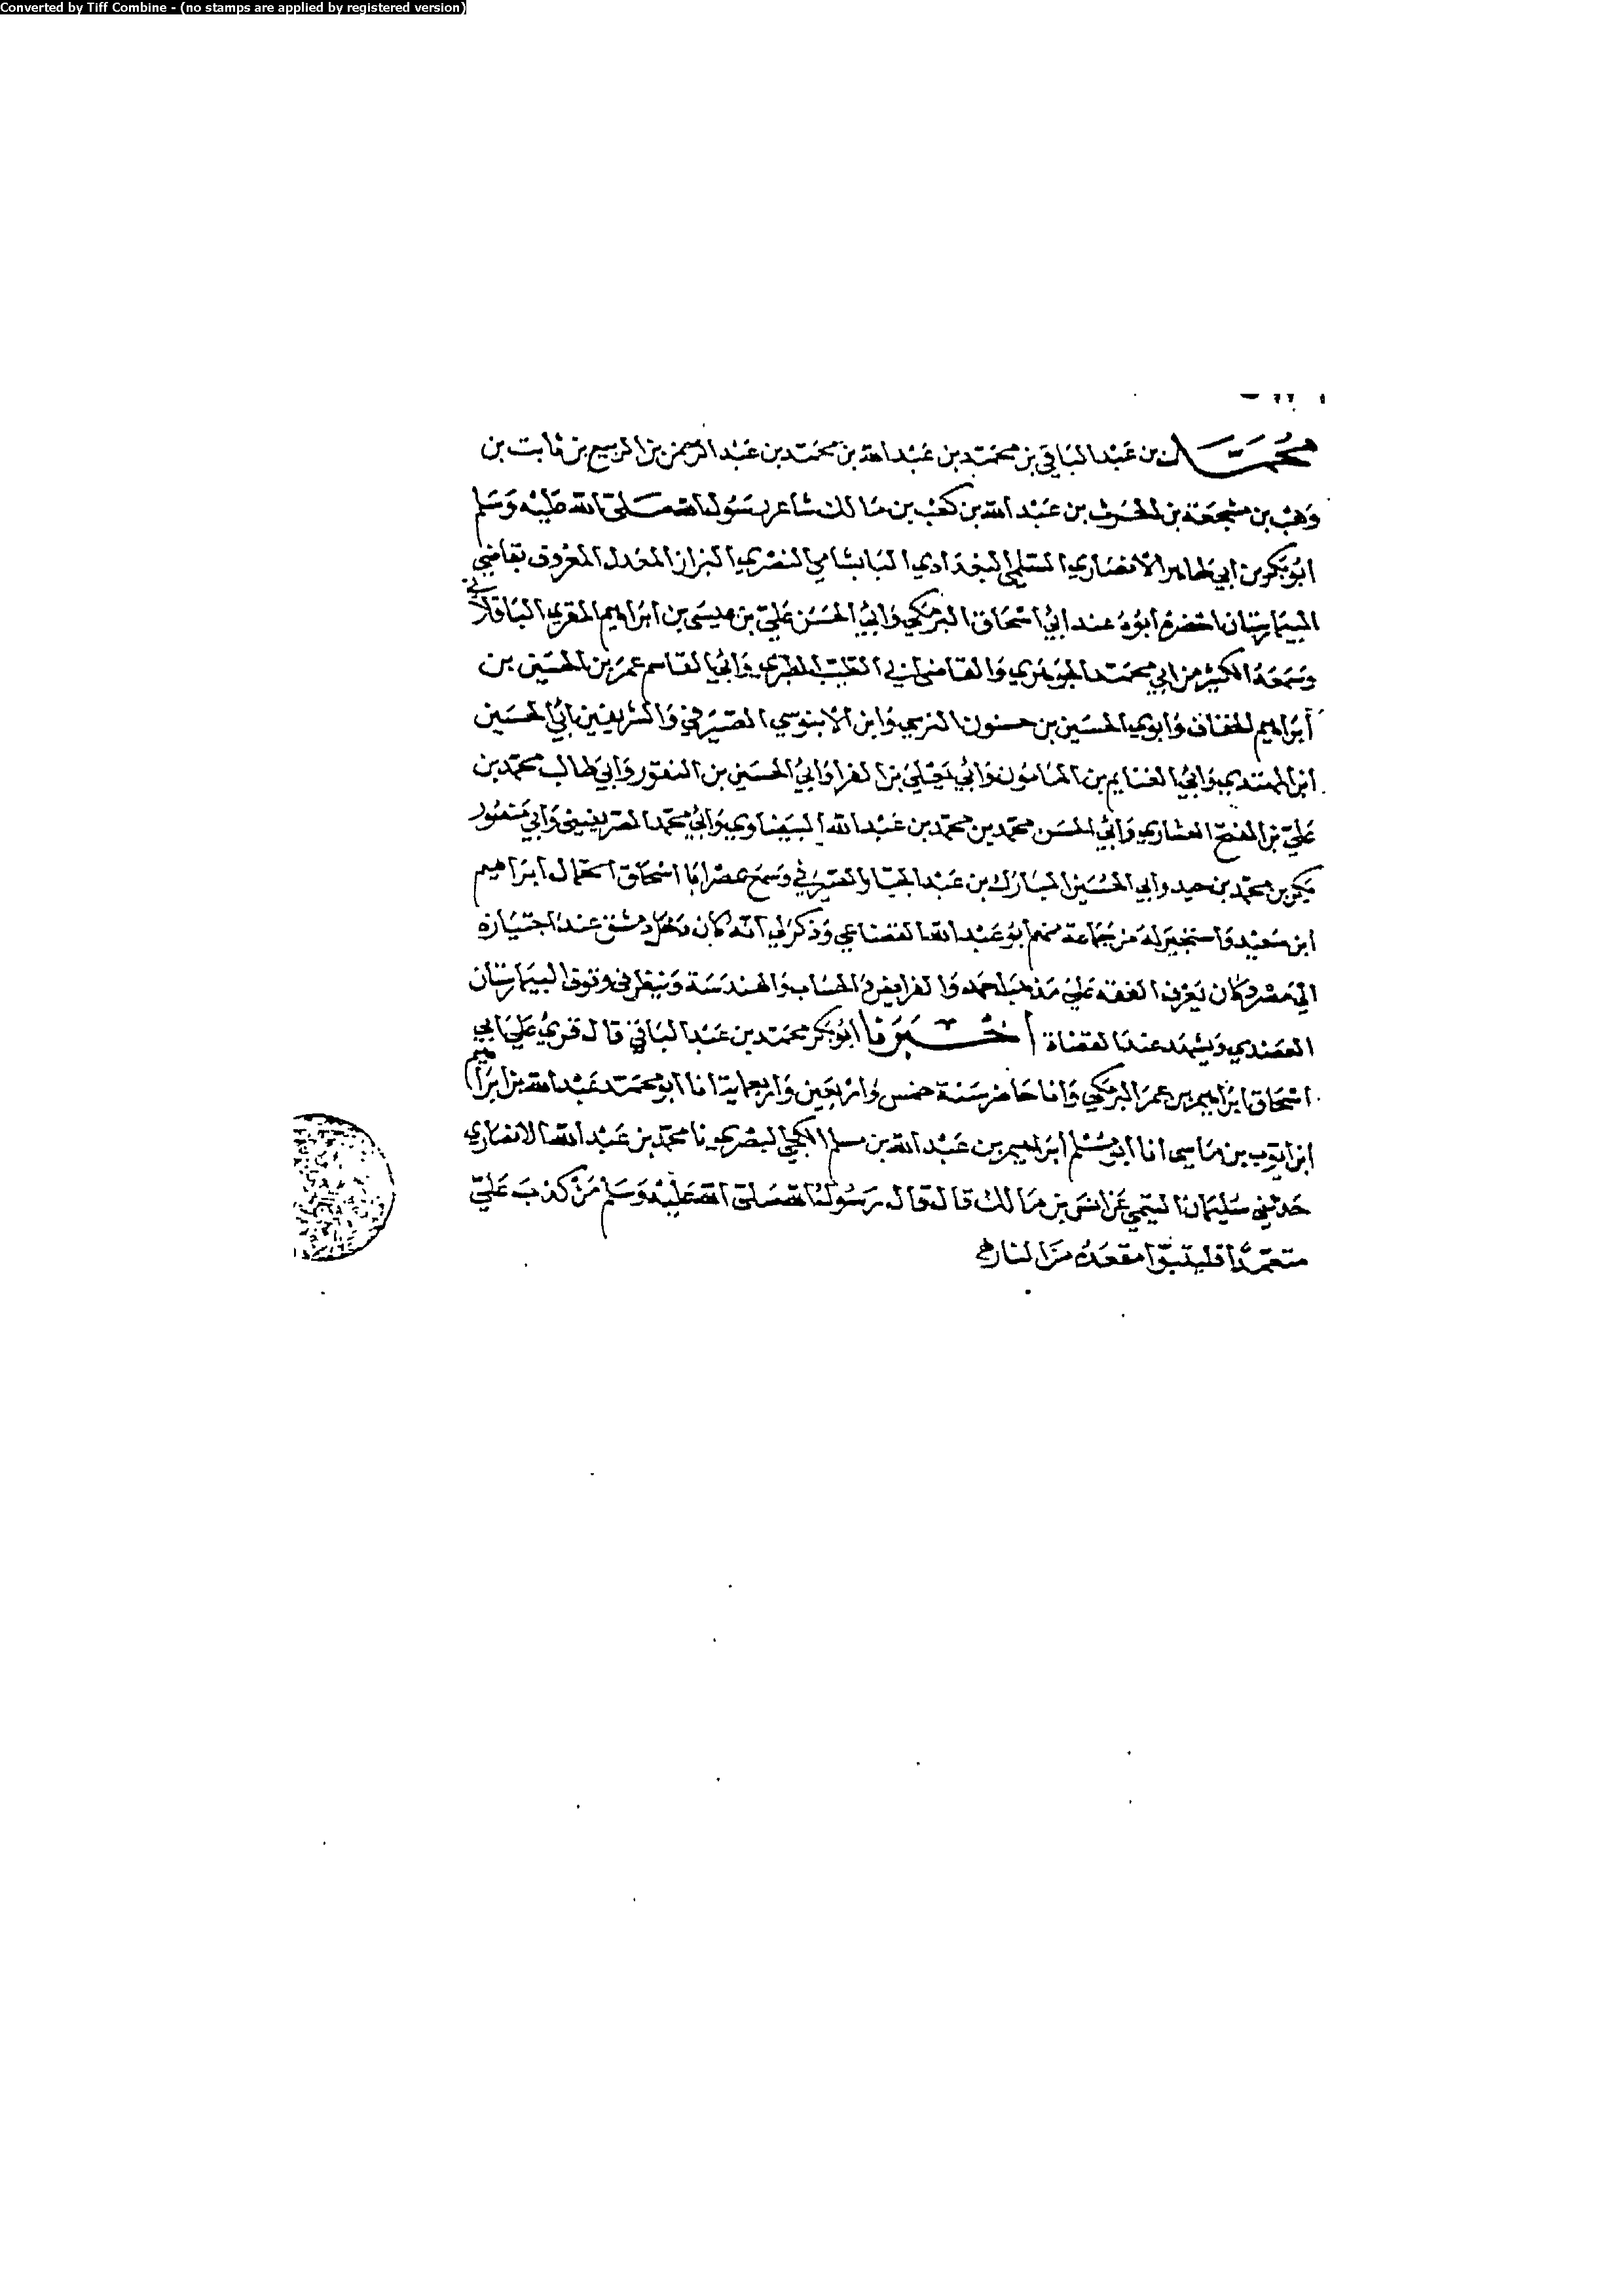 Converted by Tiff Combine - (no stamps are applied by registered version)
محمد بن عبد الباقي بن محمد بن عبد الله بن محمد بن عبد الرحمن بن الربيع بن ثابت بن
وهب بن مشجعة بن الحرث بن عبد الله بن كعب بن مالك شاعر رسول الله صلى الله عليه وسلم
ابو بكر بن ابي طاهر الانصاري السلمي البغدادي البابشامي النصري البزاز المعدل المعروف بقاضي
البيمارستان احضره ابوه عند ابي اسحاق البرمكي وابي الحسن علي بن عيسى بن ابراهيم المقري الباقلاني
وسمعه الكثير من ابي محمد الجوهري والقاضي ابي الطيب الطبري وابي القاسم عمر بن الحسين بن
ابراهيم الخفاف وابوي الحسين بن حسنون النرسي وابن الابنوسي الصيرفي والشريفين ابي الحسين
ابن المهتدي وابي الغنايم بن المامون وابي يعلى بن الفرا وابي الحسين بن النقور وابي طالب محمد بن
علي بن الفتح العشاري وابي الحسن محمد بن محمد بن عبد الله البيضاوي وابي محمد الصريفيني وابي منصور
بكر بن محمد بن حيد وابي الحسين المبارك بن عبد الجبار الصيرفي وسمع بمصر ابا اسحاق الحبال ابراهيم
ابن سعيد واستجيز له من جماعة منهم ابو عبد الله القضاعي وذكر لي انه كان دخل دمشق عند اجتيازه
الى مصر وكان يعرف الفقه على مذهب احمد والفرايض والحساب والهندسة وينظر في وقوف البيمارستان
العضدي ويشهد عند القضاة اخبرنا ابو بكر محمد بن عبد الباقي قال قري على ابي
اسحاق ابراهيم بن عمر البرمكي وانا حاضر سنة خمس واربعين واربعماية انا ابو محمد عبد الله بن ابراهيم
ابن ايوب بن ماسي انا ابو مسلم ابراهيم بن عبد الله بن مسلم الكجي البصري نا محمد بن عبد الله الانصاري
حدثني سليمان التيمي عن انس بن مالك قال قال رسول الله صلى الله عليه وسلم من كذب علي
متعمدا فليتبوا مقعده من النار